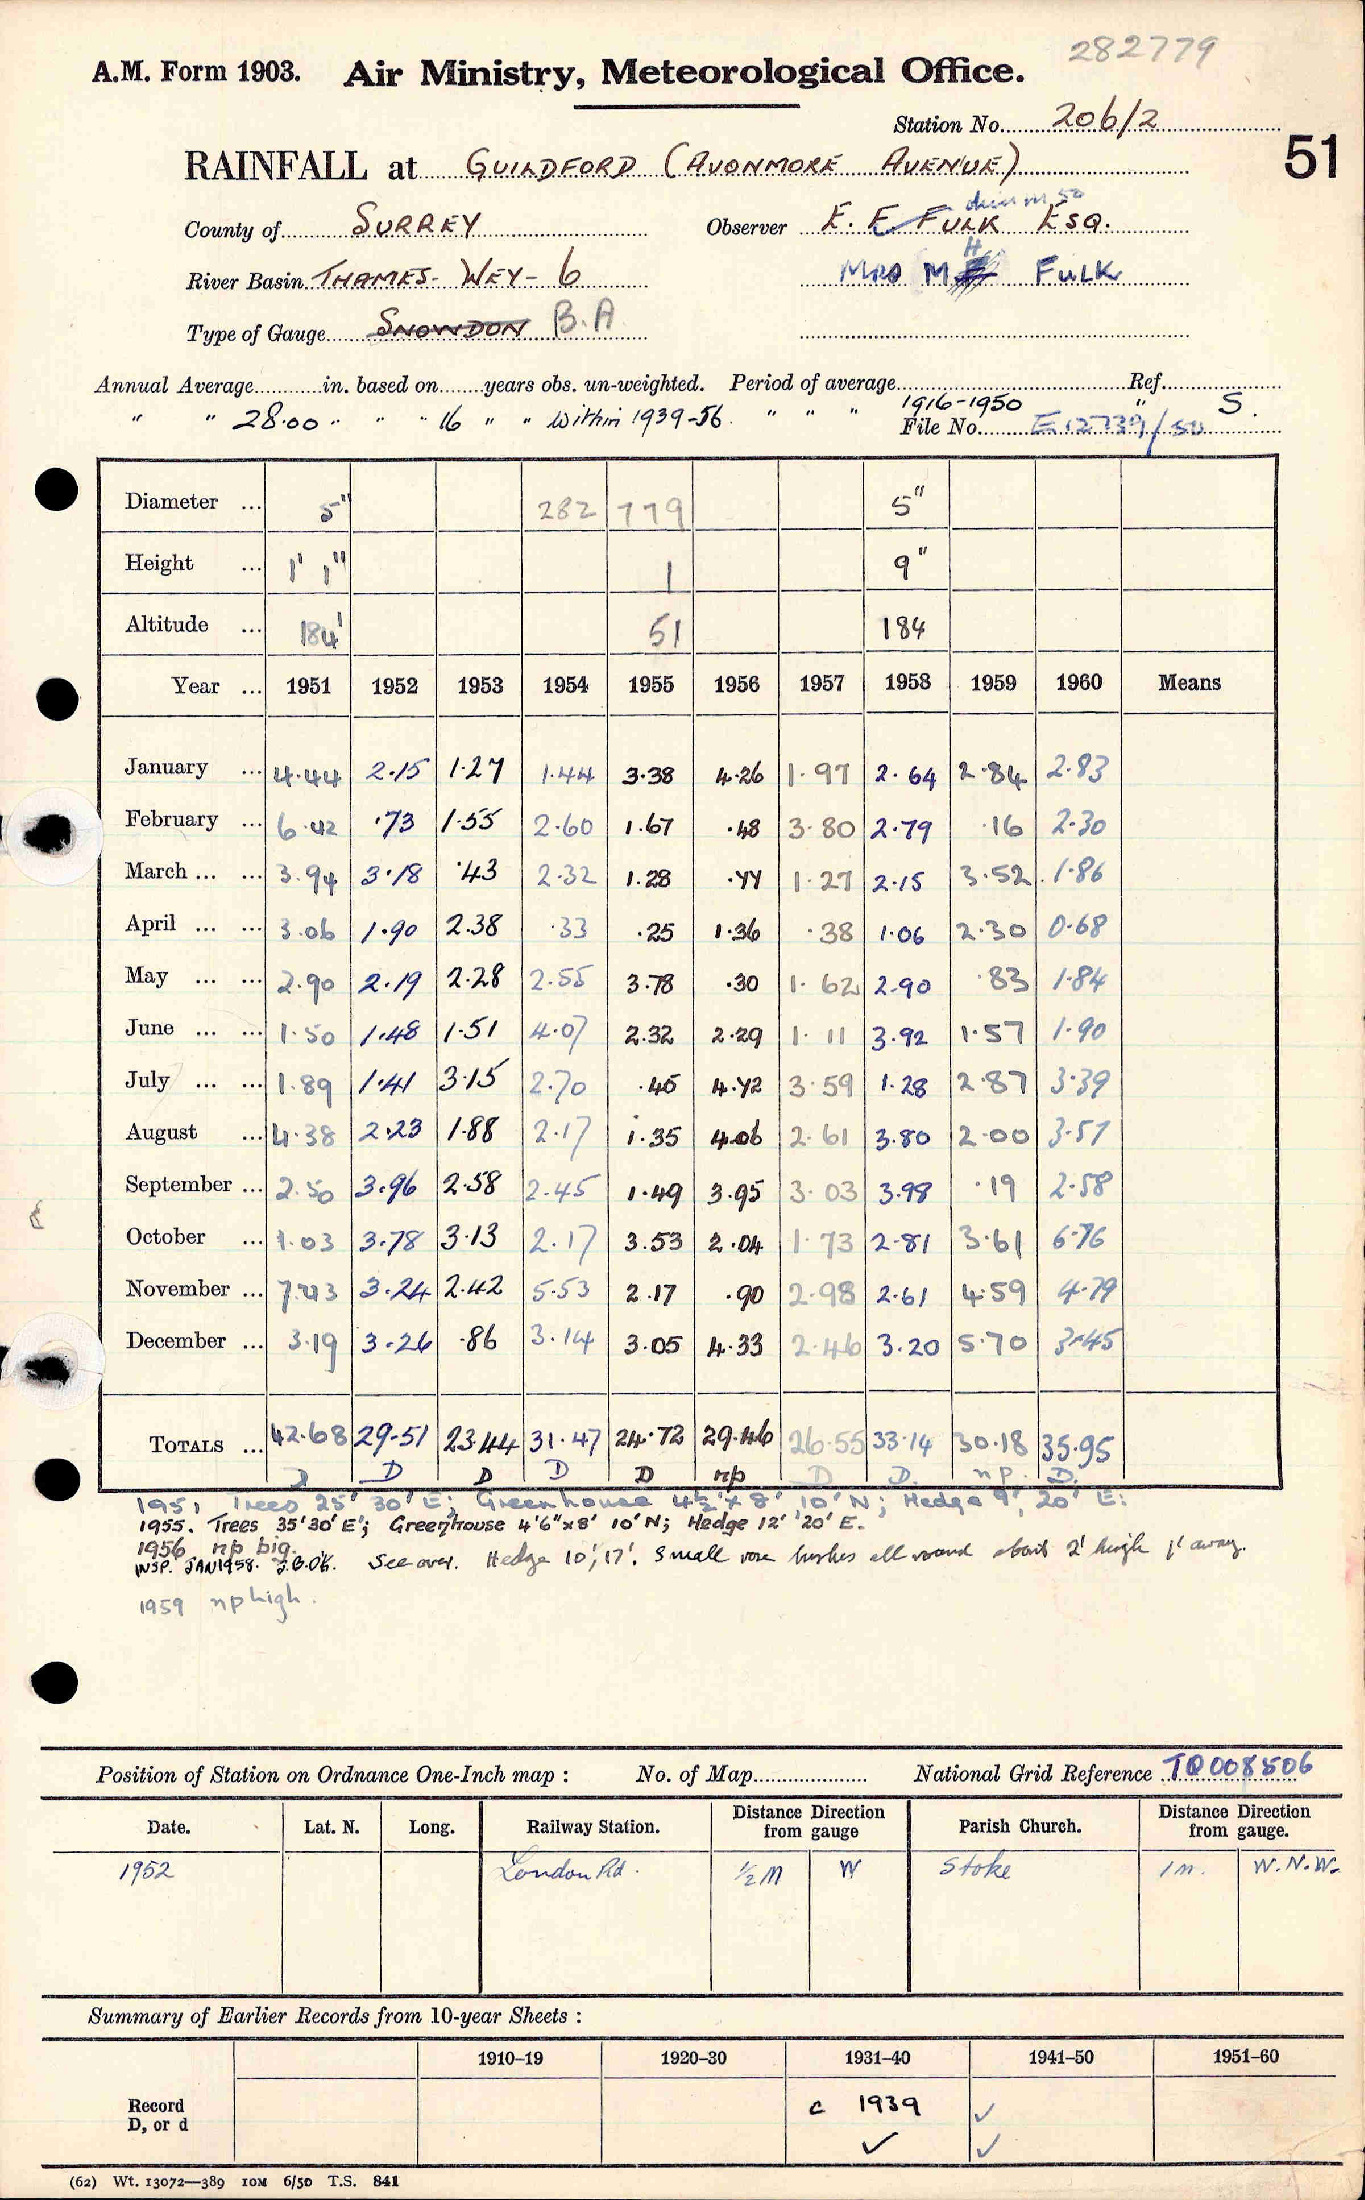 282779
A.M. Form 1903. Air Ministry, Meteorological Office.
Station No. 206/2
51
RAINFALL at GUILDFORD (AVONMORE AVENUE)
County of SURREY Observer E. E FULK ESQ.
River Basin THAMES - WEY - 6 MRS M H FULK
Type of Gauge SNOWDON B.A
Annual Average in. based on years obs. un-weighted. Period of average Ref.
" " 28.00 " " " 16 " " Within 1939-56. " " " 1916-1950 " S.
File No. E12739/50
Diameter ... 5" 282 779 5"
Height ... 1' 1" 1 9"
Altitude ... 184' 51 184
Year ... 1951 1952 1953 1954 1955 1956 1957 1958 1959 1960 Means
January ... 4.44 2.15 1.27 1.44 3.38 4.26 1.97 2.64 2.84 2.83
February ... 6.42 .73 1.55 2.60 1.67 .48 3.80 2.79 .16 2.30
March ... ... 3.94 3.18 .43 2.32 1.28 .77 1.27 2.15 3.52 1.86
April ... ... 3.06 1.90 2.38 .33 .25 1.36 .38 1.06 2.30 0.68
May ... ... 2.90 2.19 2.28 2.55 3.78 .30 1.62 2.90 .83 1.84
June ... ... 1.50 1.48 1.51 4.07 2.32 2.29 1.11 3.92 1.57 1.90
July ... ... 1.89 1.41 3.15 2.70 .45 4.72 3.59 1.28 2.87 3.39
August ... 4.38 2.23 1.88 2.17 1.35 4.06 2.61 3.80 2.00 3.57
September ... 2.50 3.96 2.58 2.45 1.49 3.95 3.03 3.98 .19 2.58
October ... 1.03 3.78 3.13 2.17 3.53 2.04 1.73 2.81 3.61 6.76
November ... 7.43 3.24 2.42 5.53 2.17 .90 2.98 2.61 4.59 4.79
December ... 3.19 3.26 .86 3.14 3.05 4.33 2.46 3.20 5.70 3.45
TOTALS ... 42.68 29.51 23.44 31.47 24.72 29.46 26.55 33.14 30.18 35.95
D D D D D np D D. np. D.
1951 Trees 25' 30' E; Greenhouse 4½' x 8' 10' N; Hedge 9', 20' E:
1955. Trees 35' 30' E'; Greenhouse 4'6" x 8' 10' N; Hedge 12' 20' E.
1956 np big.
INSP. JAN 1958. See over. Hedge 10', 17'. Small rose bushes all round about 2' high 1' away.
1959 np high.
Position of Station on Ordnance One-Inch map : No. of Map National Grid Reference TQ008506
Date. Lat. N. Long. Railway Station. Distance from gauge Direction Parish Church. Distance Direction from gauge.
1952 London Rd. ½ M W Stoke 1 m. W.N.W.
Summary of Earlier Records from 10-year Sheets :
1910–19 1920–30 1931–40 1941–50 1951–60
Record D, or d c 1939 ✓
✓ ✓
(62) Wt. 13072—389 10M 6/50 T.S. 841